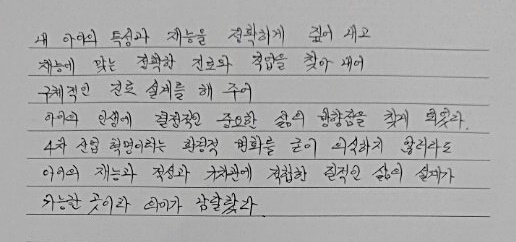 내 아이의 특성과 재능을 정확하게 짚어 내고
재능에 맞는 정확한 진로와 직업을 찾아 내어
구체적인 진로 설계를 해 주어
아이의 인생에 결정적인 중요한 삶의 방향점을 찾게 되었다.
4차 산업 혁명이라는 환경적 변화를 굳이 의식하지 않더라도
아이의 재능과 적성과 가치관에 적합한 질적인 삶의 설계가
가능한 곳이라 의미가 남달랐다.